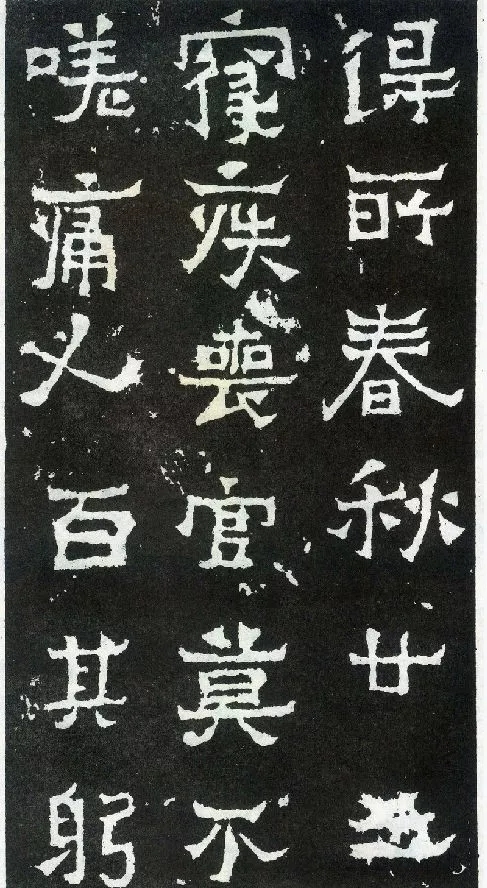 得所春秋廿
寑疾喪官莫不
嗟痛人百其躬